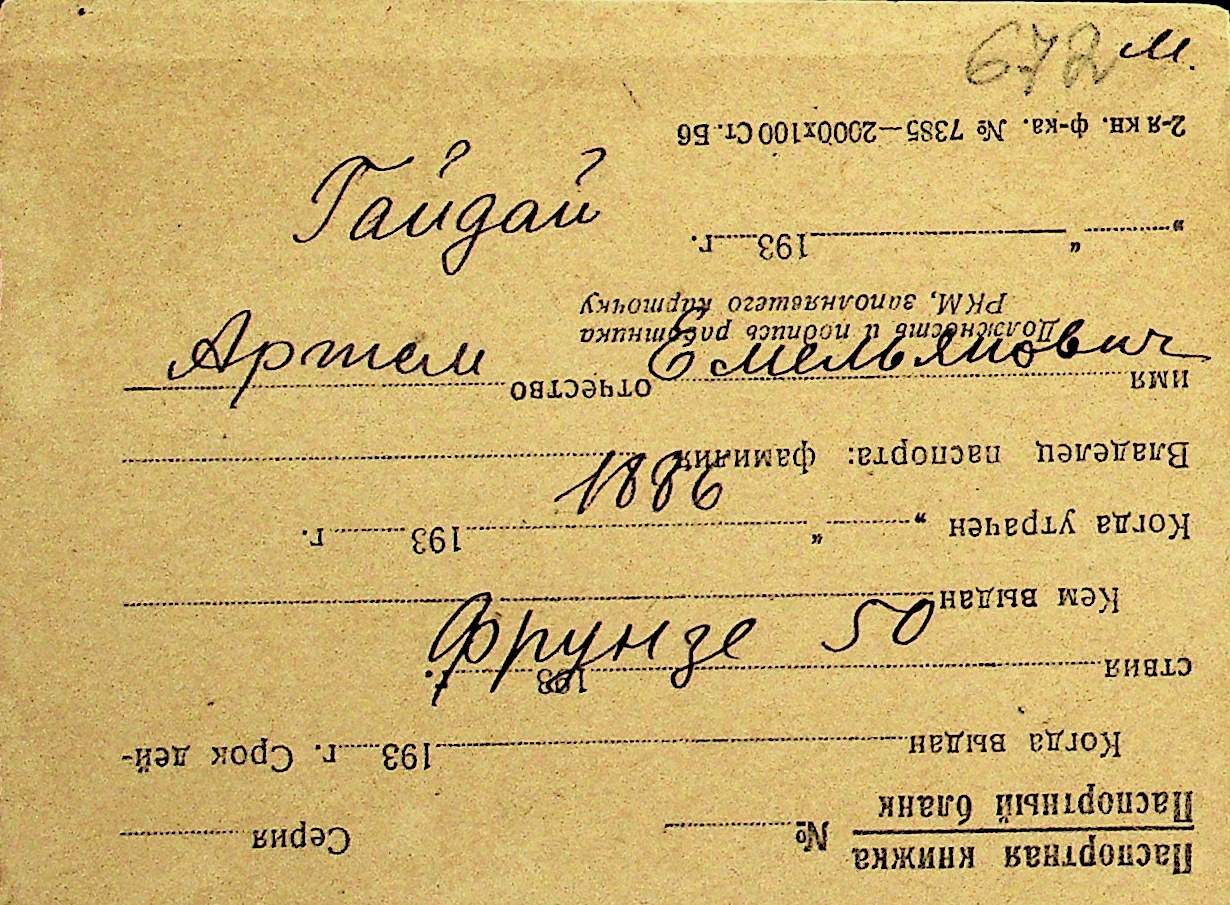 672 м.
Гайдай
Артем Емельянович
1886
Фрунзе 50
Паспортная книжка
Паспортный бланк
№ Серия
Когда выдан 193 г. Срок дей-
ствия 193 г.
Кем выдан
Когда утрачен „ “ 193 г.
Владелец паспорта: фамилия
имя отчество
Должность и подпись работника
РКМ, заполнявшего карточку
„ “ 193 г.
2-я кн. ф-ка. № 7385—2000х100 Ст. Б6